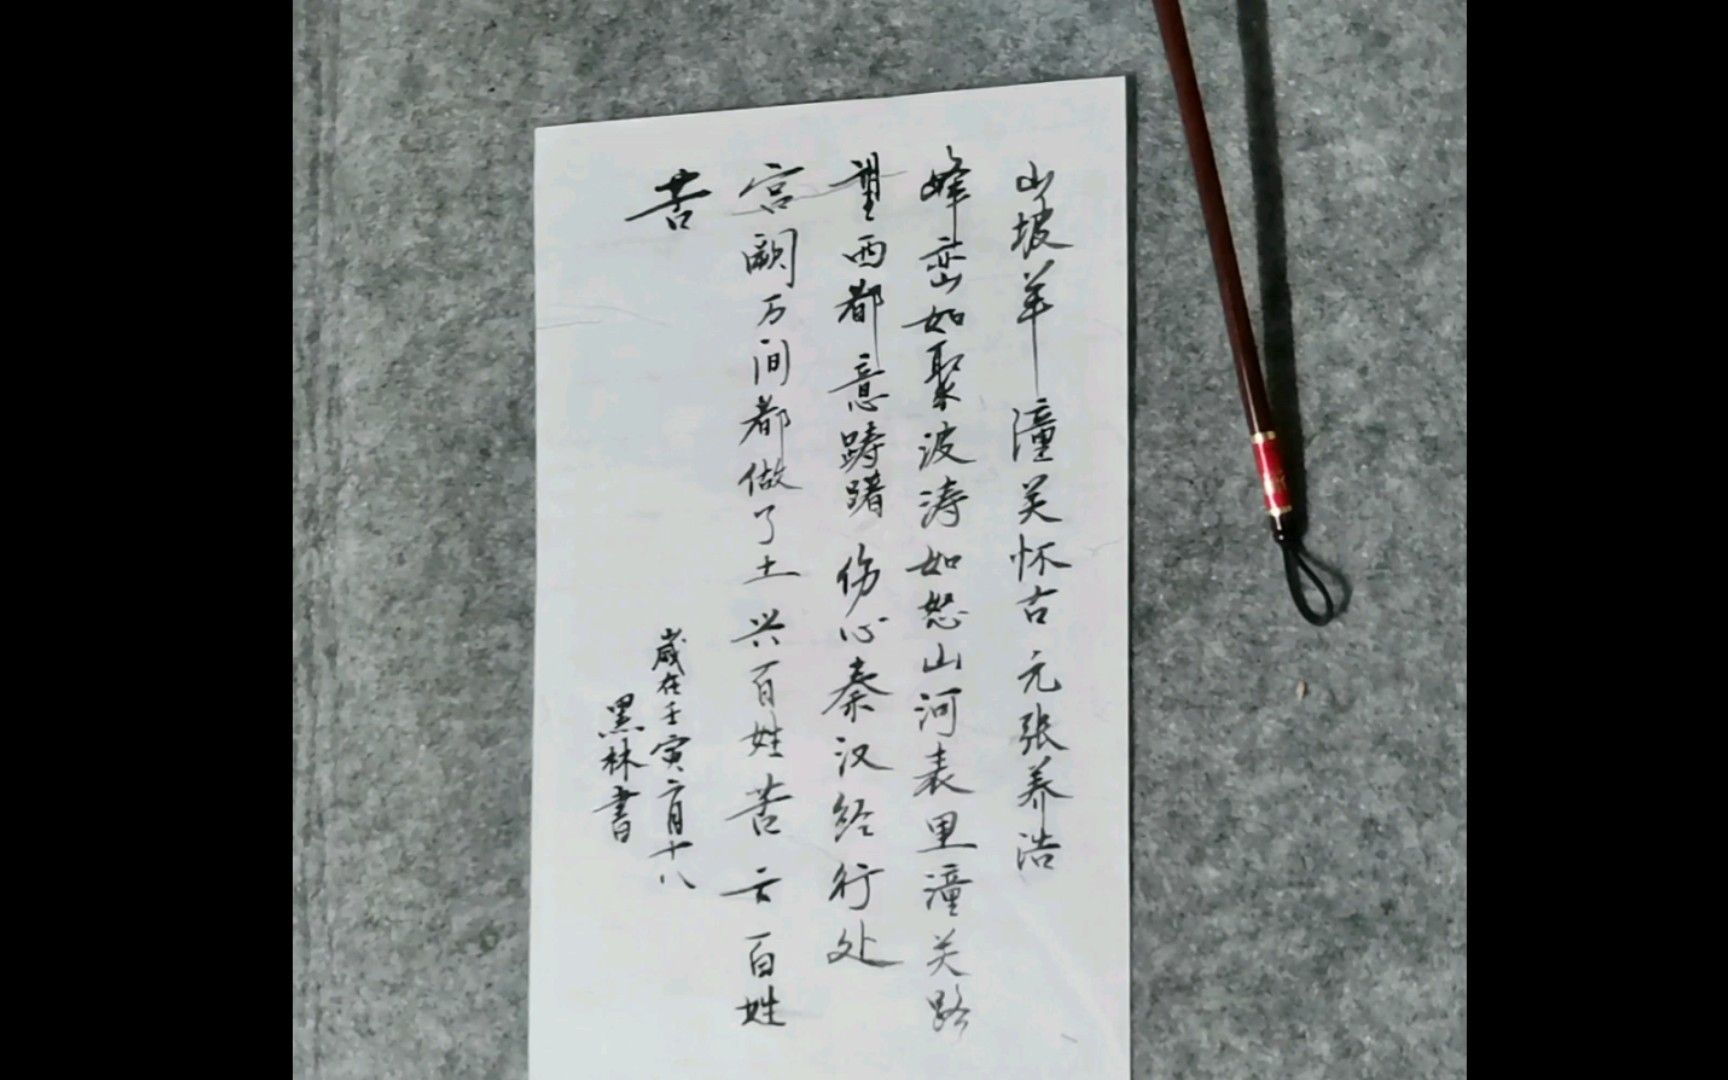 山坡羊 潼关怀古 元张养浩
峰峦如聚波涛如怒山河表里潼关路
望西都意踌躇伤心秦汉经行处
宫阙万间都做了土兴百姓苦亡百姓
苦
岁在壬寅六月十八
黑林書